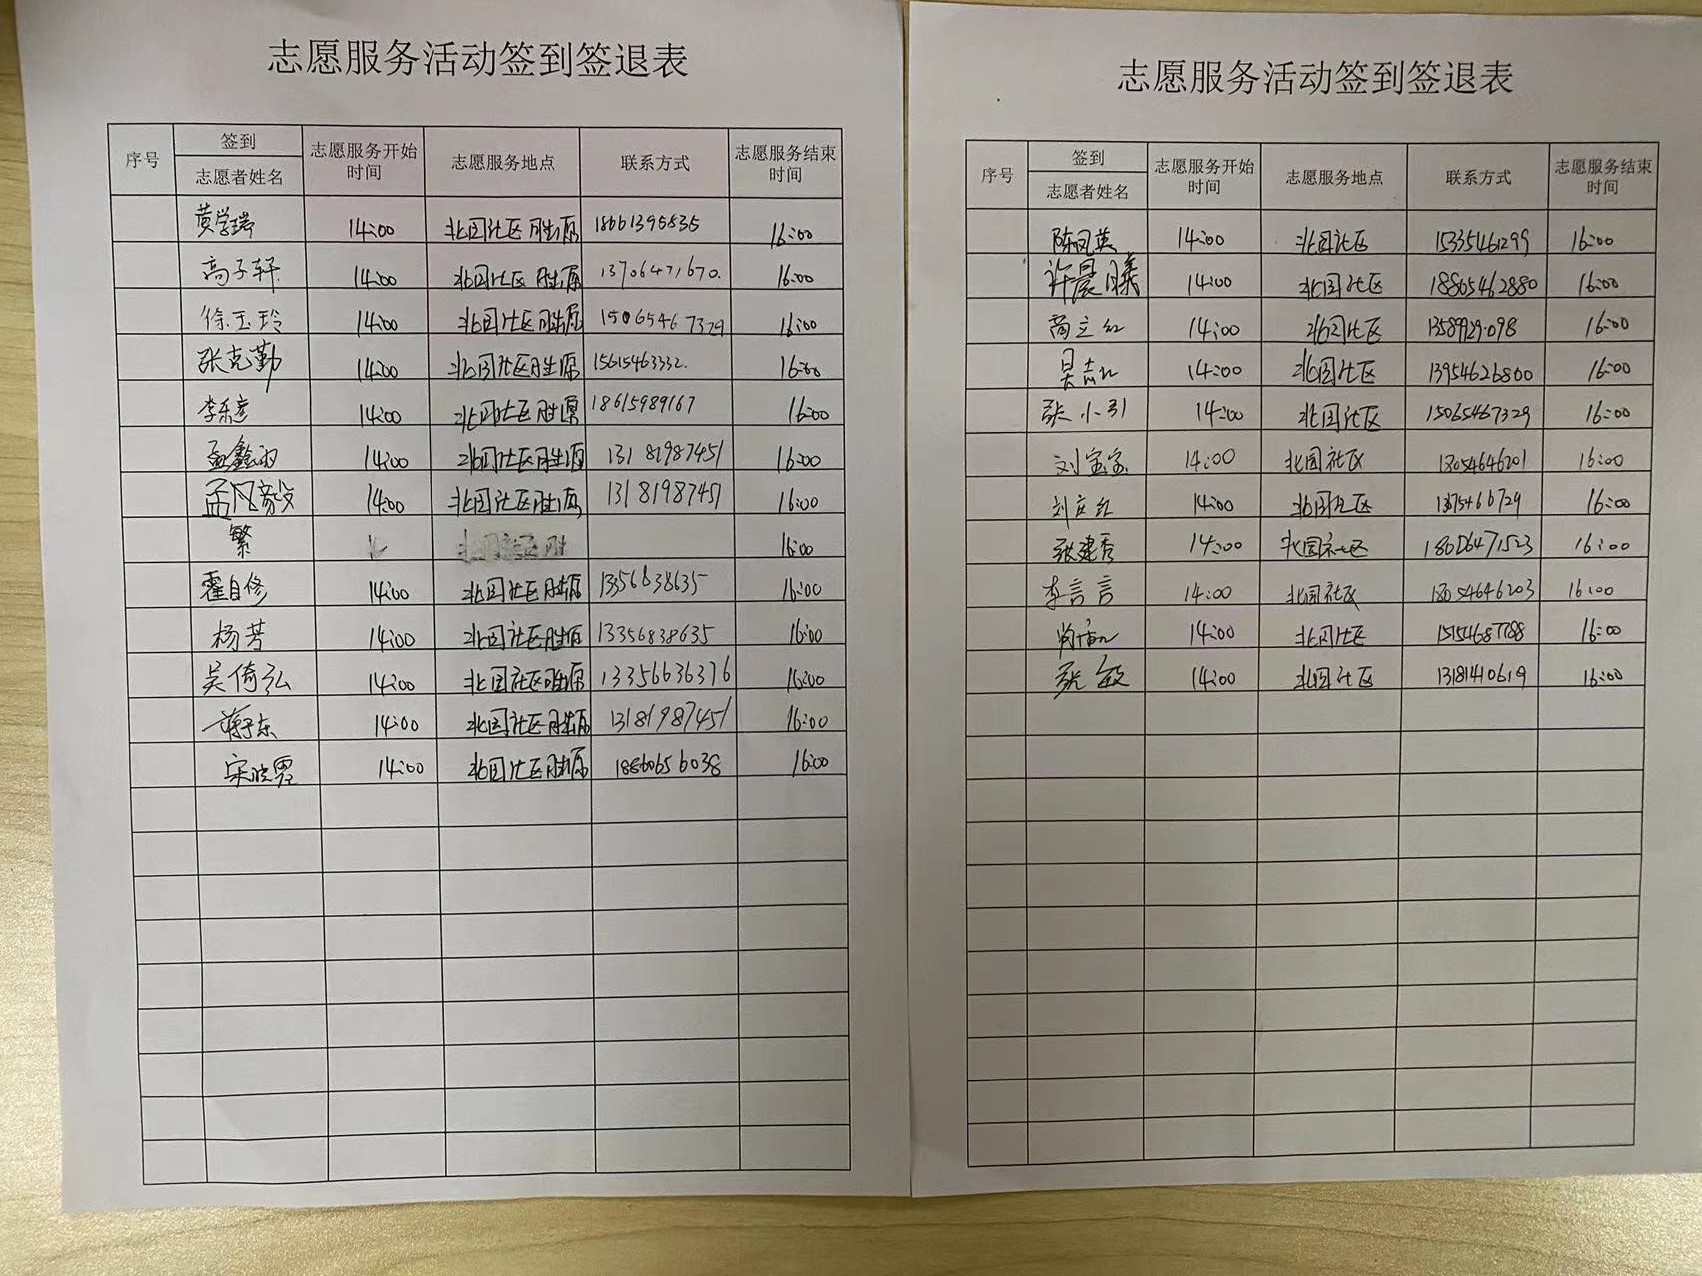 志愿服务活动签到签退表
序号 签到 志愿者姓名 志愿服务开始时间 志愿服务地点 联系方式 志愿服务结束时间
黄学瑞 14:00 北园社区 18661395535 16:00
高子轩 14:00 北园社区 13706471670. 16:00
徐玉玲 14:00 北园社区 15065467329 16:00
张克勤 14:00 北园社区 15615463332. 16:00
李乐彦 14:00 北园社区 18615989167 16:00
孟鑫羽 14:00 北园社区 13181987451 16:00
孟凡毅 14:00 北园社区 13181987451 16:00
繁 16:00
霍自修 14:00 北园社区 13356838635 16:00
杨芳 14:00 北园社区 13356838635 16:00
吴倚弘 14:00 北园社区 13356636376 16:00
14:00 北园社区 13181987451 16:00
宋晓霞 14:00 北园社区 18860656038 16:00
志愿服务活动签到签退表
序号 签到 志愿者姓名 志愿服务开始时间 志愿服务地点 联系方式 志愿服务结束时间
陈凤英 14:00 北园社区 15335461299 16:00
许晨曦 14:00 北园社区 18865462880 16:00
尚立红 14:00 北园社区 16:00
14:00 北园社区 13954626800 16:00
张小引 14:00 北园社区 15065467329 16:00
刘宝家 14:00 北园社区 13054646201 16:00
刘庆红 14:00 北园社区 16:00
张建秀 14:00 北园社区 18026471523 16:00
李言言 14:00 北园社区 18054646203 16:00
14:00 北园社区 15154687788 16:00
张敏 14:00 北园社区 13181410619 16:00